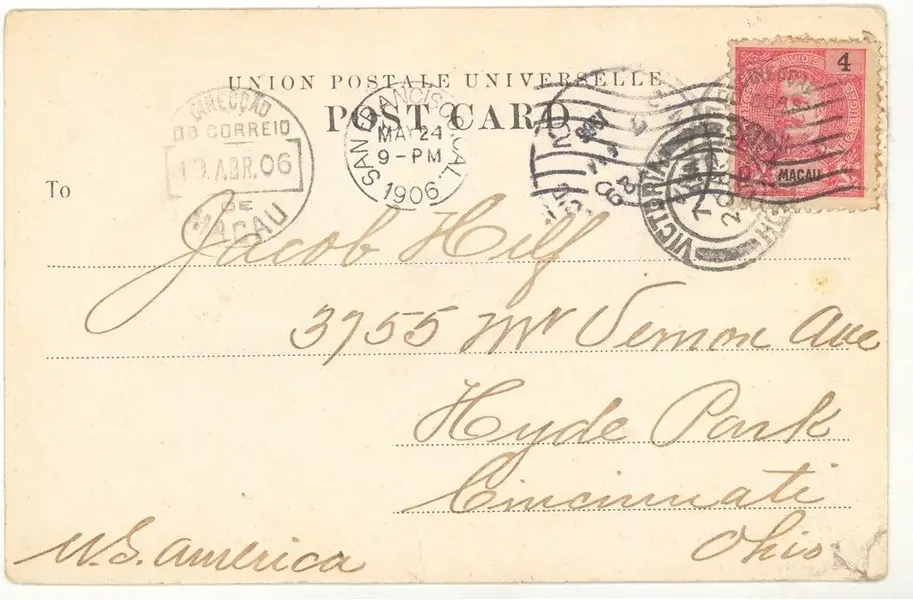 UNION POSTALE UNIVERSELLE
POST CARD
DIRECÇÃO
DO CORREIO
19.ABR.06
DE
MACAU
SAN FRANCISCO, CAL.
MAY 24
9-PM
1906
VICTORIA
4
MACAU
To
Jacob Hilf
3755 Mt Vernon Ave
Hyde Park
Cincinnati
Ohio
U.S. America